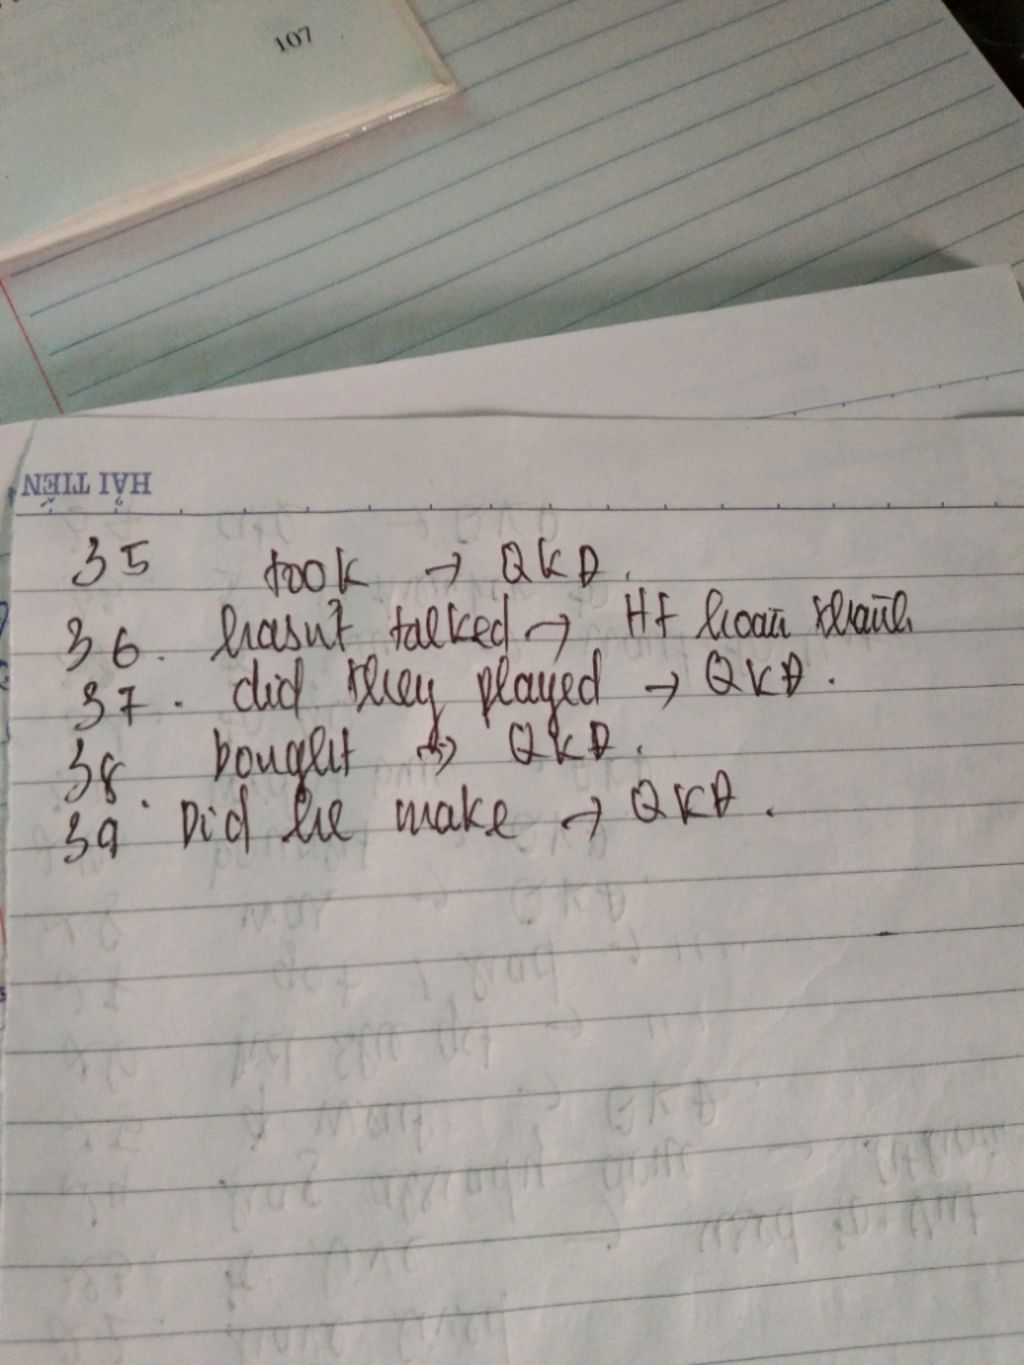 107
HẢI TIẾN
35 took → QKĐ.
36. hasn't talked → HT hoàn thành
37. did they played → QKĐ.
38 bought → QKĐ.
39. Did he make → QKĐ.